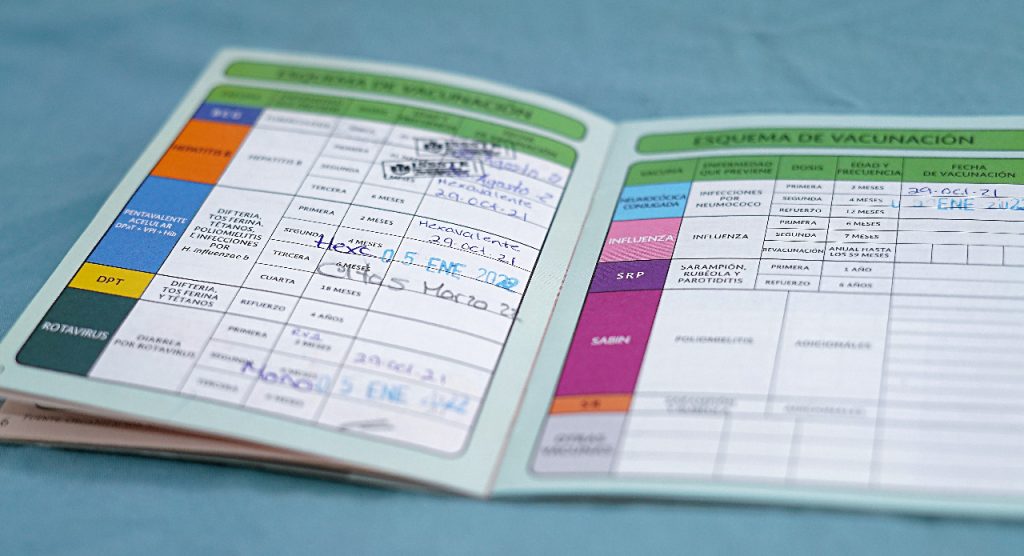 ESQUEMA DE VACUNACIÓN
BCG
HEPATITIS B
HEPATITIS B
PRIMERA
SEGUNDA
TERCERA
6 MESES
Hexavalente
29.oct.21
PENTAVALENTE
ACELULAR
DPaT + VPI + Hib
DIFTERIA,
TOS FERINA
TÉTANOS,
POLIOMIELITIS
E INFECCIONES
POR
H. influenzae b
PRIMERA
2 MESES
Hexavalente
29.oct.21
SEGUNDA
4 MESES
Hexa
05 ENE 2022
TERCERA
6 MESES
Marzo 22
CUARTA
18 MESES
DPT
DIFTERIA,
TOS FERINA
Y TÉTANOS
REFUERZO
4 AÑOS
ROTAVIRUS
DIARREA
POR ROTAVIRUS
PRIMERA
2 MESES
29.oct.21
SEGUNDA
05 ENE 2022
TERCERA
ESQUEMA DE VACUNACIÓN
VACUNA
ENFERMEDAD
QUE PREVIENE
DOSIS
EDAD Y
FRECUENCIA
FECHA
DE VACUNACIÓN
NEUMOCÓCICA
CONJUGADA
INFECCIONES
POR
NEUMOCOCO
PRIMERA
2 MESES
29-oct-21
SEGUNDA
4 MESES
ENE 2022
REFUERZO
12 MESES
INFLUENZA
INFLUENZA
PRIMERA
6 MESES
SEGUNDA
7 MESES
REVACUNACIÓN
ANUAL HASTA
LOS 59 MESES
SRP
SARAMPIÓN,
RUBÉOLA Y
PAROTIDITIS
PRIMERA
1 AÑO
REFUERZO
6 AÑOS
SABIN
POLIOMIELITIS
ADICIONALES
SR
ADICIONALES
OTRAS
VACUNAS